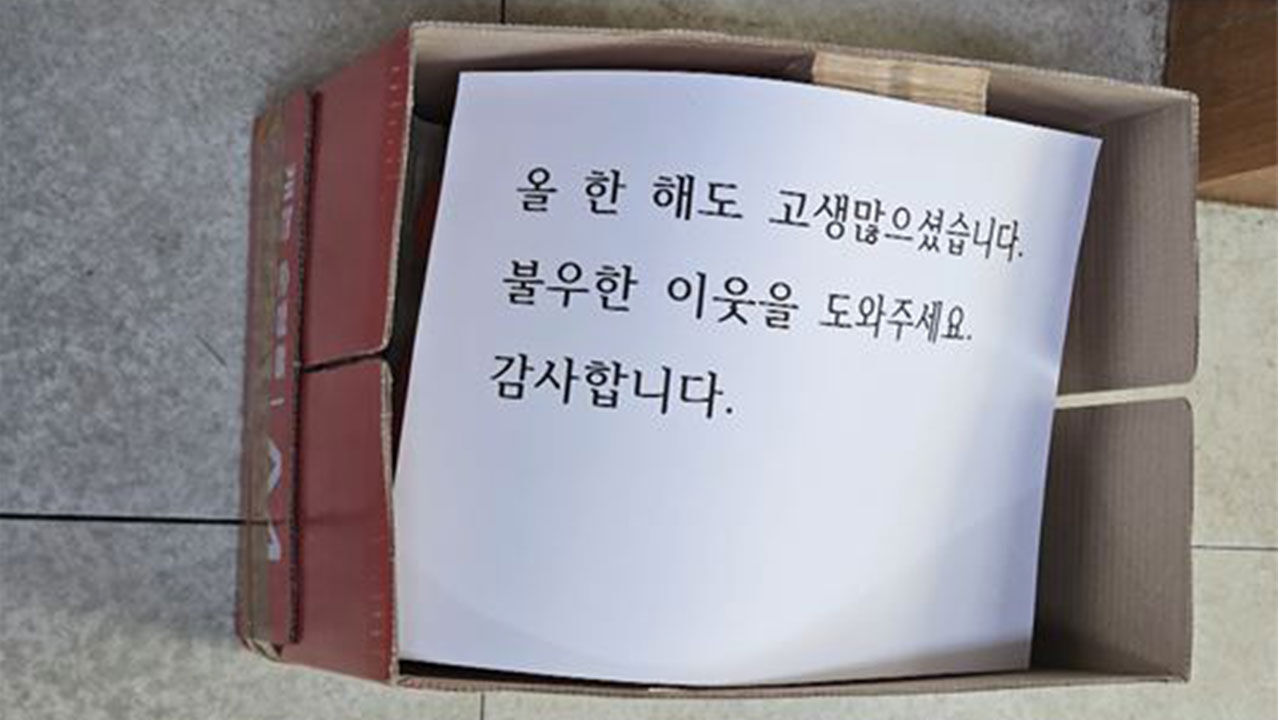 올 한 해도 고생많으셨습니다.
불우한 이웃을 도와주세요.
감사합니다.